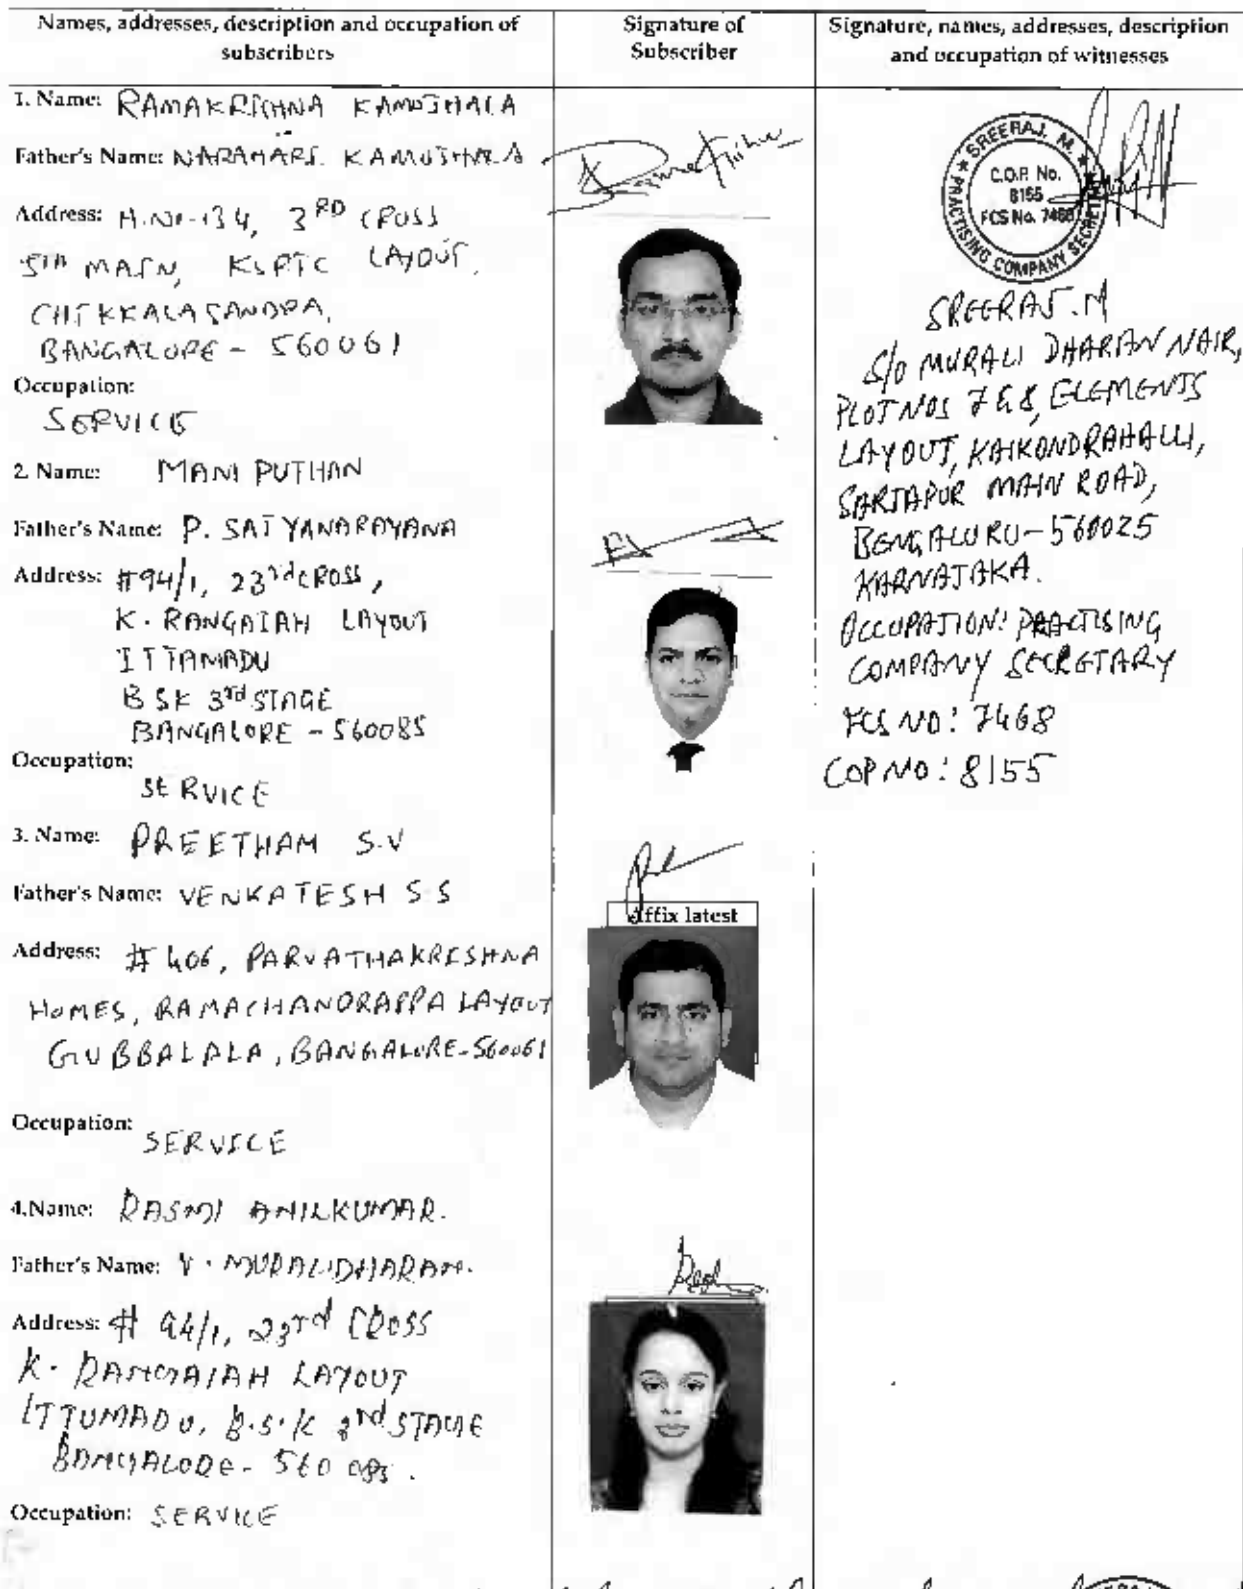 Names, addresses, description and occupation of
subscribers
Signature of
Subscriber
Signature, names, addresses, description
and occupation of witnesses
1. Name: RAMAKRISHNA KAMOJHALA
Father's Name: NARAHARI KAMOJHALA
Address: H.No-134, 3RD CROSS
5TH MAIN, KSRTC LAYOUT,
CHIKKALASANDRA,
BANGALORE - 560061
Occupation:
SERVICE
2. Name: MANI PUTHAN
Father's Name: P. SATYANARAYANA
Address: #94/1, 23rd CROSS,
K. RANGAIAH LAYOUT
ITTAMADU
BSK 3rd STAGE
BANGALORE - 560085
Occupation:
SERVICE
3. Name: PREETHAM S.V
Father's Name: VENKATESH S.S
Address: # 406, PARVATHAKRISHNA
HOMES, RAMACHANDRAPPA LAYOUT
GUBBALALA, BANGALORE-560061
Occupation:
SERVICE
4.Name: RASMI ANILKUMAR.
Father's Name: V. MURALIDHARAN.
Address: # 94/1, 23rd CROSS
K. RANGAIAH LAYOUT
ITTUMADU, B.S.K 3rd STAGE
BANGALORE - 560 085.
Occupation: SERVICE
Affix latest
SREERAJ. M.
★ PRACTISING COMPANY SECRETARY ★
C.O.P. No.
8155
FCS No. 7468
SREERAJ.M
S/O MURALI DHARAN NAIR,
PLOT NOS 7&8, ELEMENTS
LAYOUT, KAIKONDRAHALLI,
SARJAPUR MAIN ROAD,
BENGALURU-560025
KARNATAKA.
OCCUPATION: PRACTISING
COMPANY SECRETARY
FCS NO: 7468
COP NO: 8155